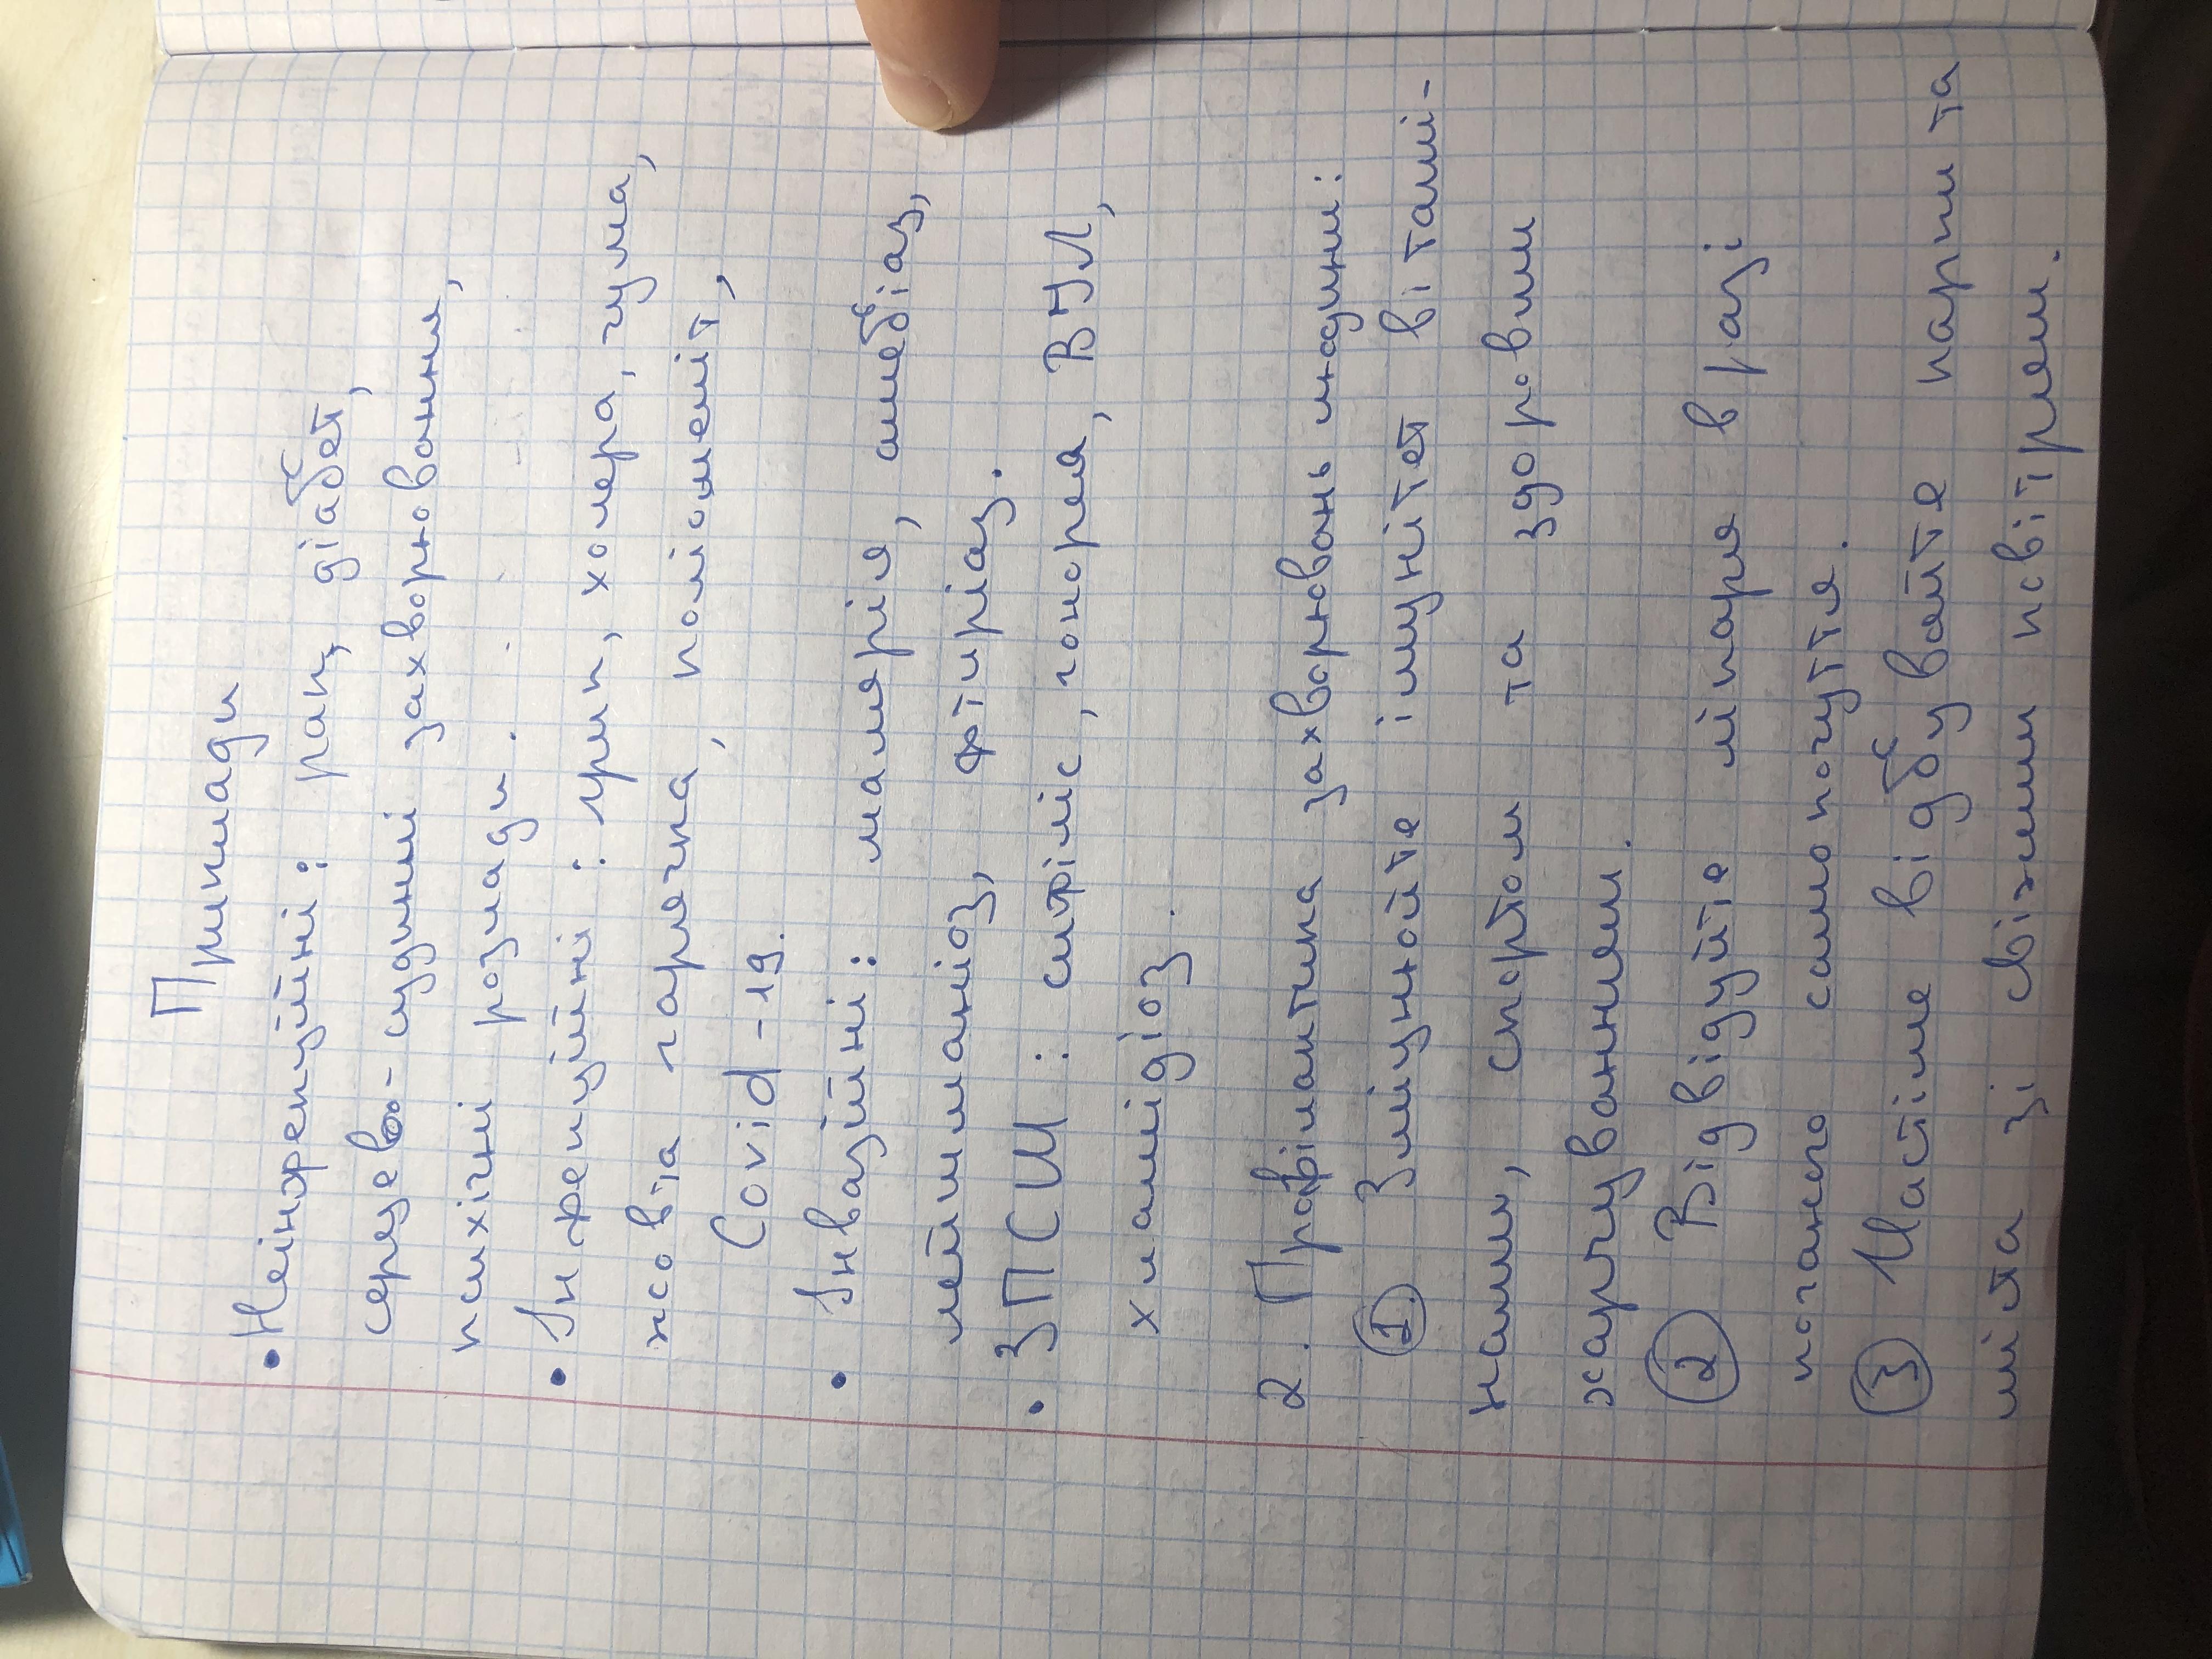 Приклади
• Неінфекційні: рак, діабет,
серцево-судинні захворювання,
психічні розлади.
• Інфекційні: грип, холера, чума,
жовта гарячка, поліомеліт,
Covid-19.
• Інвазійні: малярія, амебіаз,
лейшманіоз, фтиріаз.
• ЗПСШ: сифіліс, гонорея, ВПЛ,
хламідіоз.
2. Профілактика захворювань людини:
① Зміцнюйте імунітет вітамі-
нами, спортом та здоровим
харчуванням.
② Відвідуйте лікаря в разі
поганого самопочуття.
③ Частіше відбувайте парки та
міста зі свіжим повітрям.